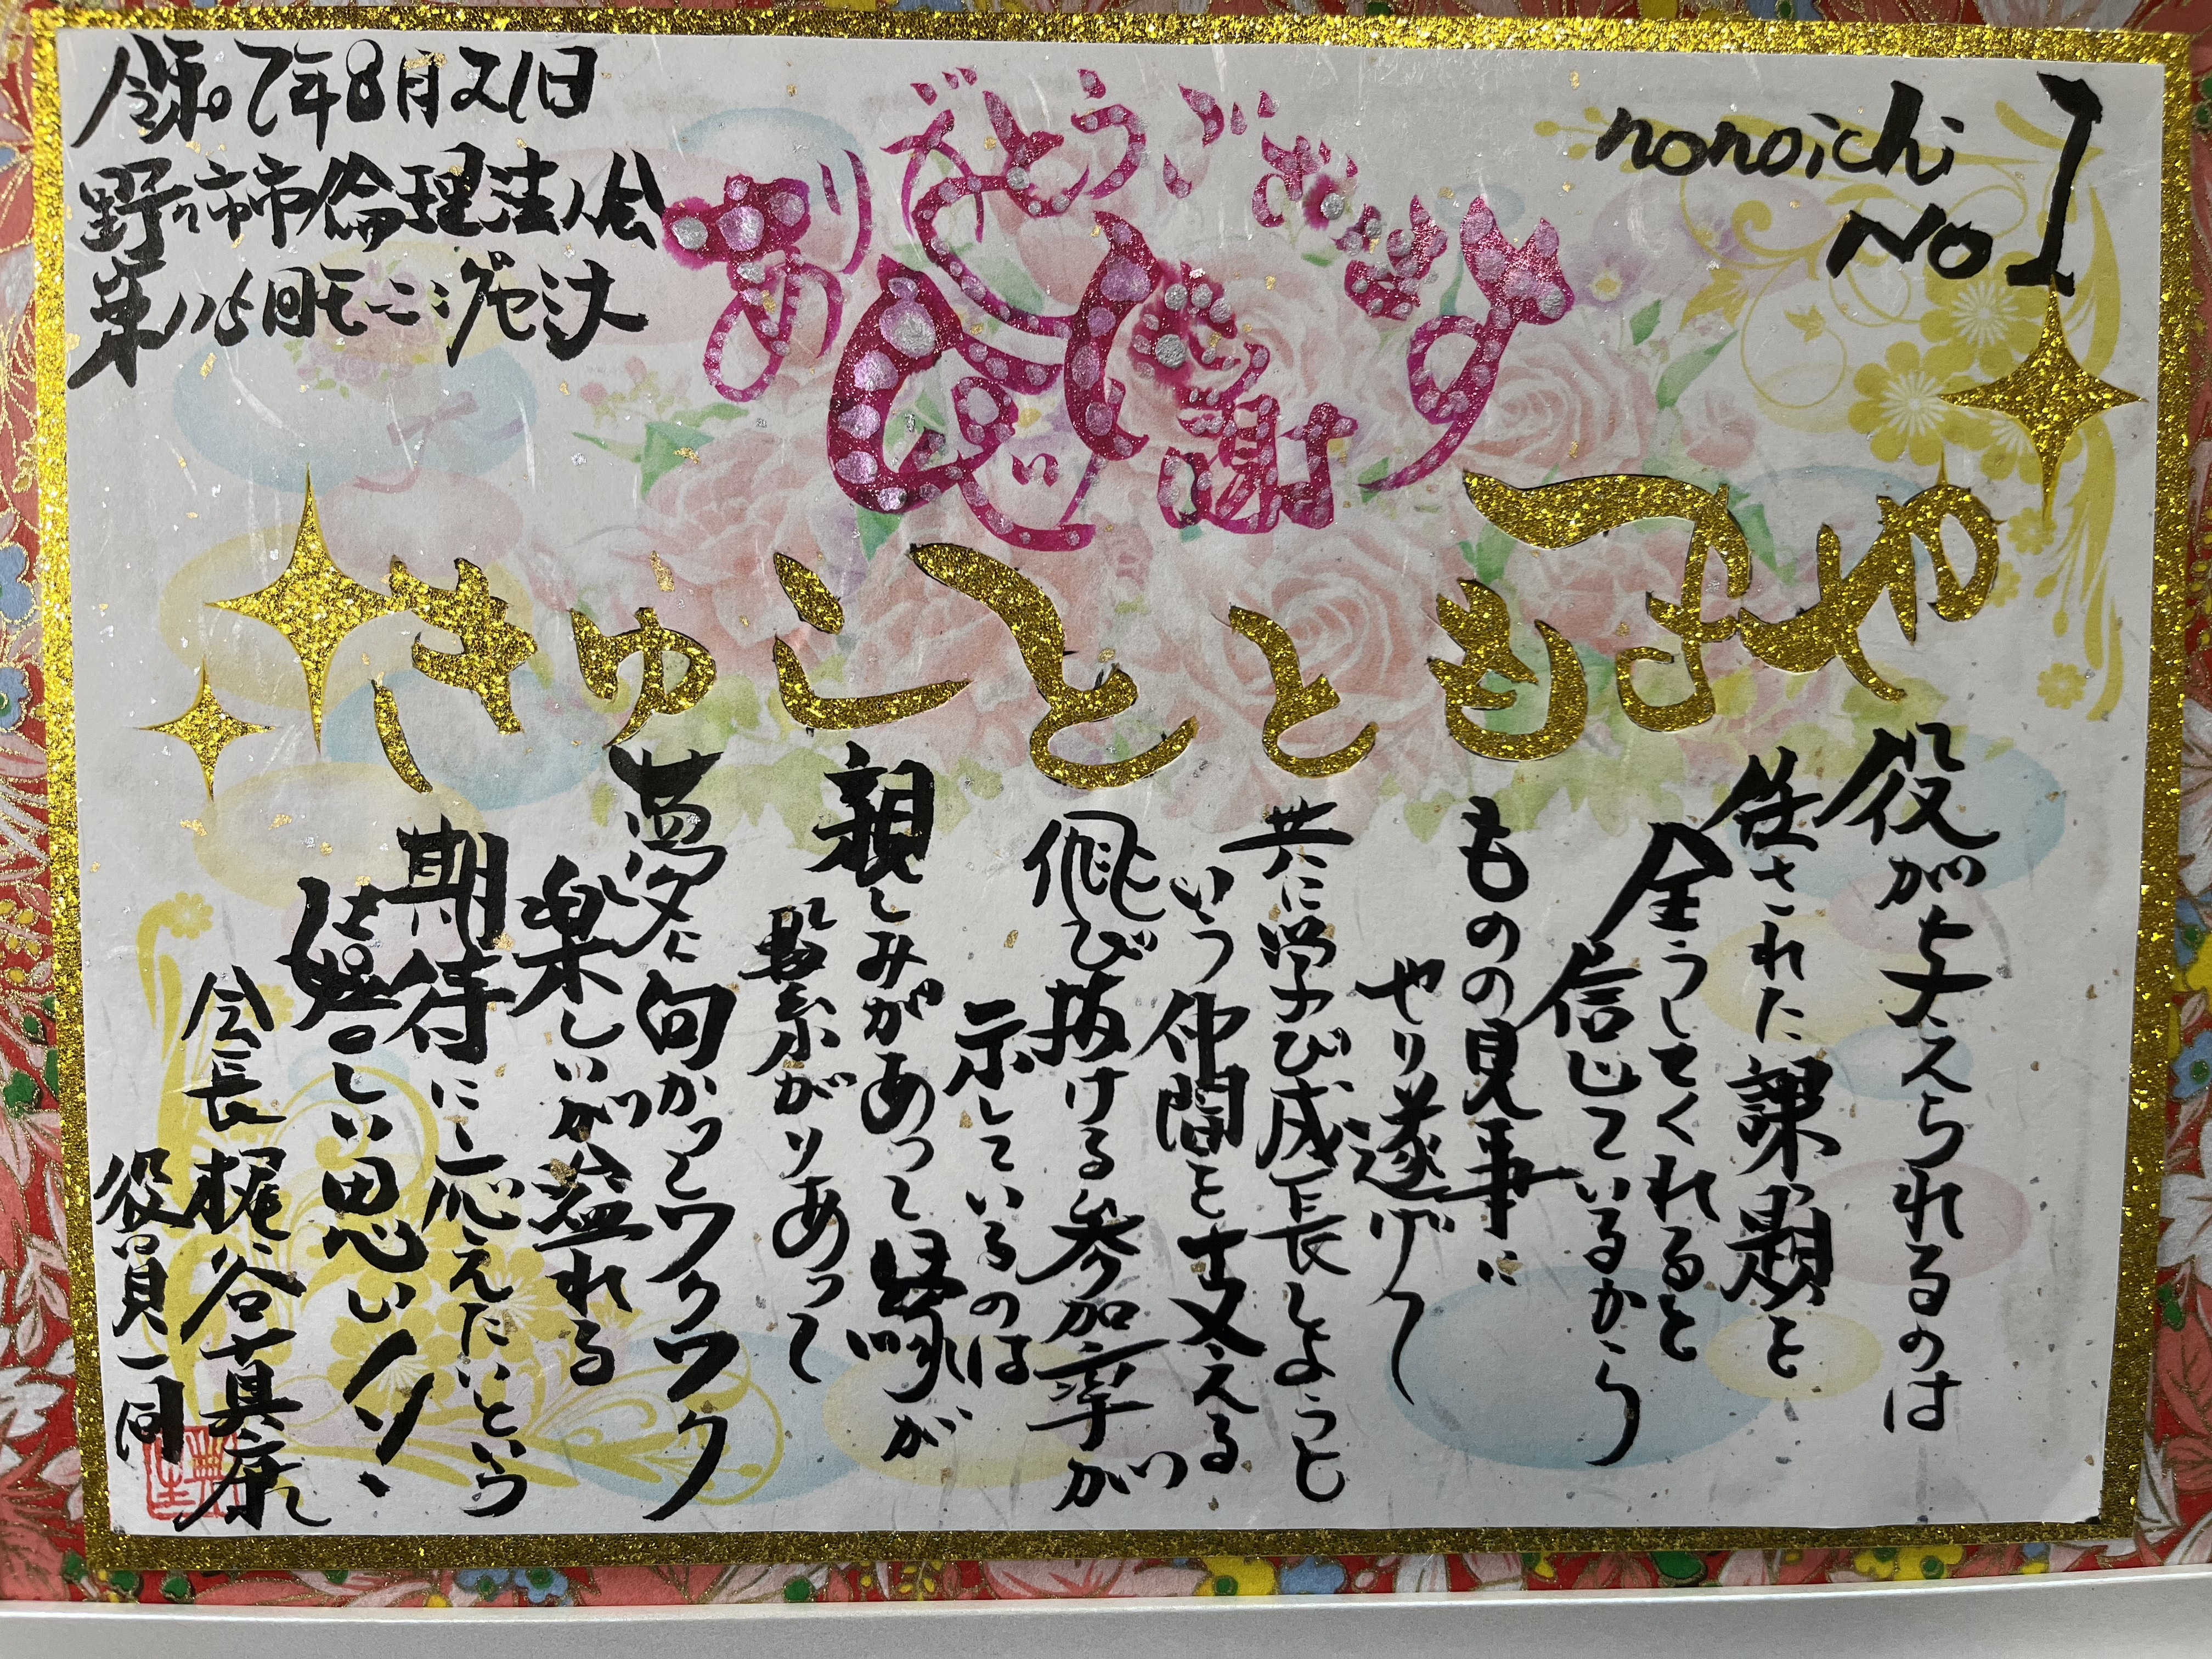 令和7年8月21日
野々市市倫理法人会
モーニングセミナー
ありがとうございます
感謝
nonoichi
No 1
やまもととしゆき
役が与えられるのは
任された課題を
全うしてくれると
信じているから
ものの見事に
やり遂げて
共に学び成長しようと
いう仲間を支える
飛び抜ける参加率が
示しているのは
親しみがあって縁が
繋がりあって
夢に向かってワクワク
楽しいが溢れる
期待に応えたいという
嬉しい思い
会長 梶谷真康
役員一同